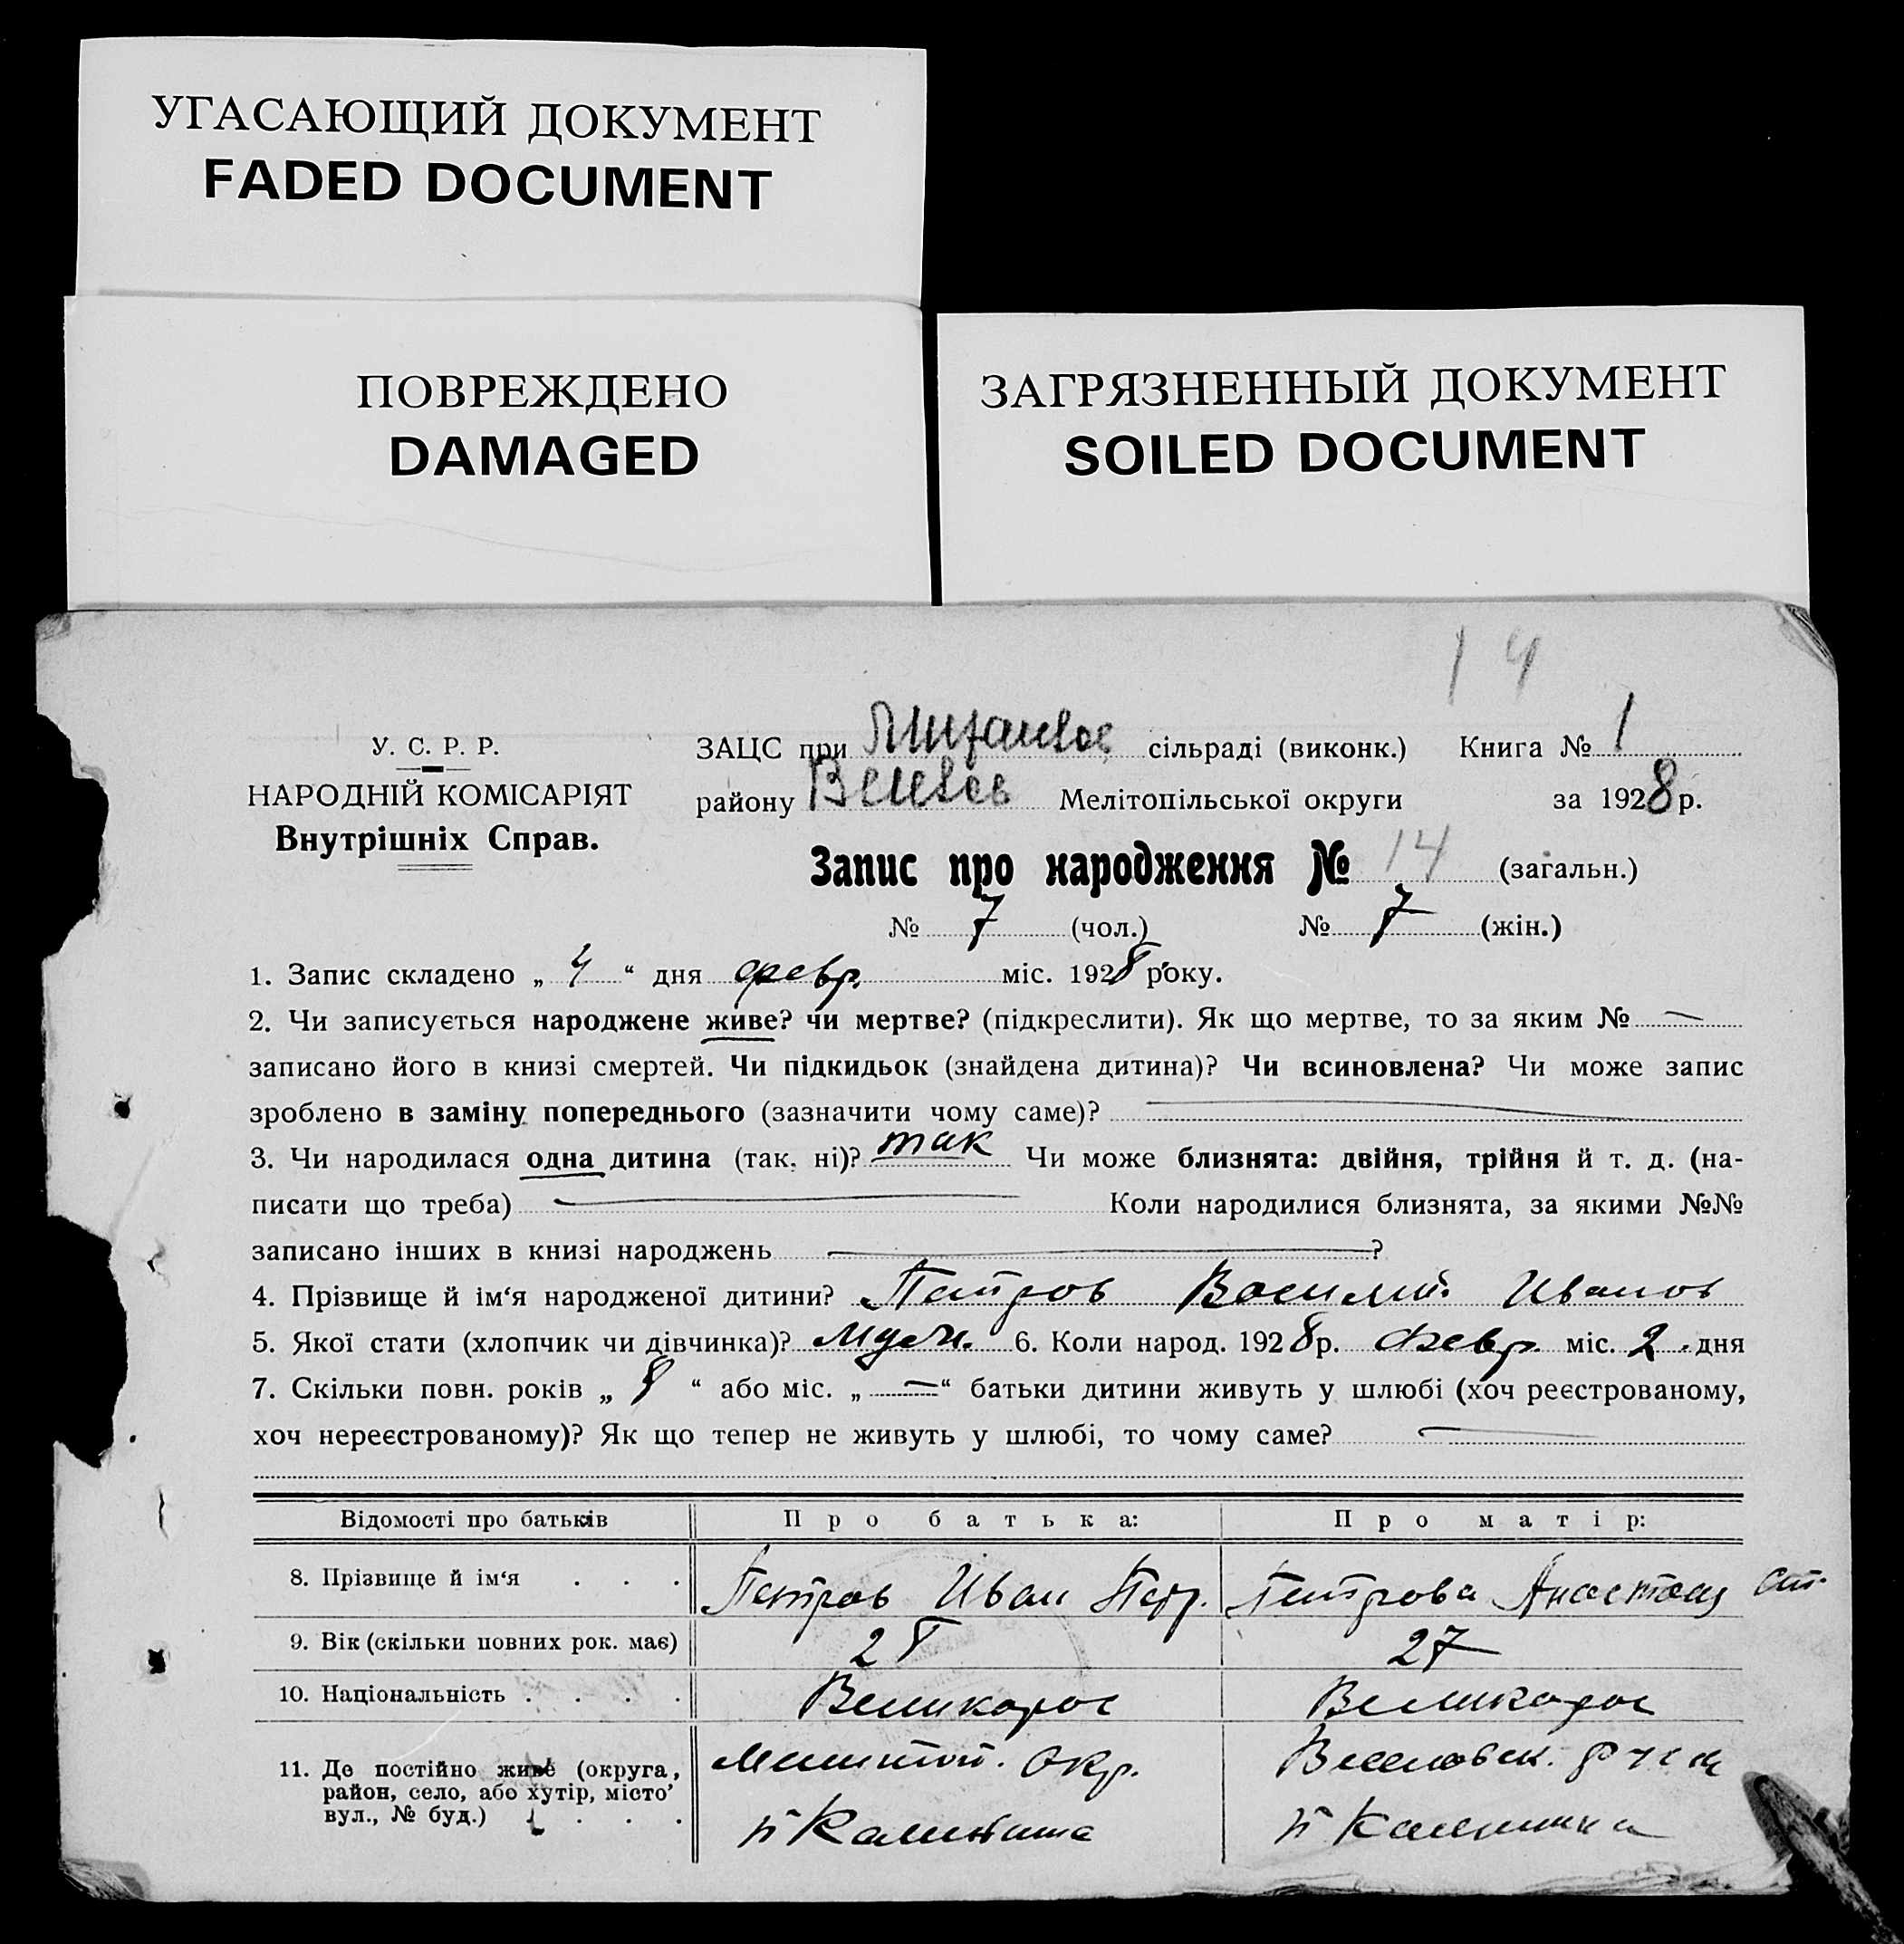 УГАСАЮЩИЙ ДОКУМЕНТ
FADED DOCUMENT
ПОВРЕЖДЕНО
DAMAGED
ЗАГРЯЗНЕННЫЙ ДОКУМЕНТ
SOILED DOCUMENT
14
У. С. Р. Р.
НАРОДНІЙ КОМІСАРІЯТ
Внутрішніх Справ.
ЗАЦС при сільраді (виконк.) Книга № 1
району Мелітопільської округи за 1928 р.
Запис про народження № 14 (загальн.)
№ 7 (чол.) № 7 (жін.)
1. Запис складено „ 4 “ дня февр. міс. 1928 року.
2. Чи записується народжене живе? чи мертве? (підкреслити). Як що мертве, то за яким № —
записано його в книзі смертей. Чи підкидьок (знайдена дитина)? Чи всиновлена? Чи може запис
зроблено в заміну попереднього (зазначити чому саме)? —
3. Чи народилася одна дитина (так, ні)? так Чи може близнята: двійня, трійня й т. д. (на-
писати що треба) — Коли народилися близнята, за якими №№
записано інших в книзі народжень — ?
4. Прізвище й ім‘я народженої дитини? Петров Василий Иванов
5. Якої стати (хлопчик чи дівчинка)? 6. Коли народ. 1928 р. Февр. міс. 2 дня
7. Скільки повн. років „ 8 “ або міс. „ — “ батьки дитини живуть у шлюбі (хоч реєстрованому,
хоч нереєстрованому)? Як що тепер не живуть у шлюбі, то чому саме? —
Відомості про батьків Про батька: Про матір:
8. Прізвище й ім‘я . . . Петров Иван Петр. Петрова Анастасия
9. Вік (скільки повних рок. має) 28 27
10. Національність . . . . Великорос Великорос
11. Де постійно живе (округа, район, село, або хутір, місто, вул., № буд.) . . . Мелитоп. Окр. Веселовск. р
п Калинина п Калинина